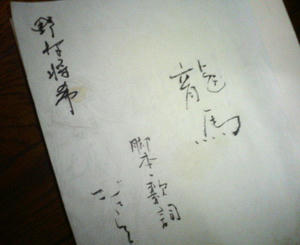 野村将希
龍馬
脚本・歌詞